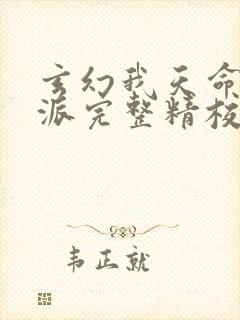 玄幻我天命
派完整精校
韦正就